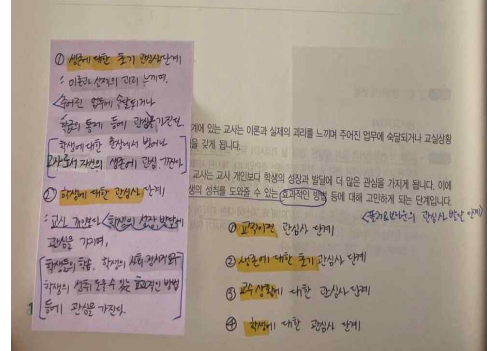 ① 생존에 대한 초기 관심사 단계
: 이론과 실제의 괴리 느끼며,
주어진 업무에 숙달되거나
학급의 통제 등에 관심을 가진다
학생에 대한 관심에서 벗어나
교사로서 자신의 생존에 관심 가진다.
② 학생에 대한 관심사 단계
: 교사 개인보다 학생의 성장, 발달에
관심을 가지며,
학생들의 학습, 학생의 사회·정서적 요구
학생의 성취 도울 수 있는 효과적인 방법
등에 관심을 가진다.
계에 있는 교사는 이론과 실제의 괴리를 느끼며 주어진 업무에 숙달되거나 교실상황
을 갖게 됩니다.
교사는 교사 개인보다 학생의 성장과 발달에 더 많은 관심을 가지게 됩니다. 이에
생의 성취를 도와줄 수 있는 효과적인 방법 등에 대해 고민하게 되는 단계입니다.
관심사 발달 단계>
① 교직이전 관심사 단계
② 생존에 대한 초기 관심사 단계
③ 교수상황에 대한 관심사 단계
④ 학생에 대한 관심사 단계